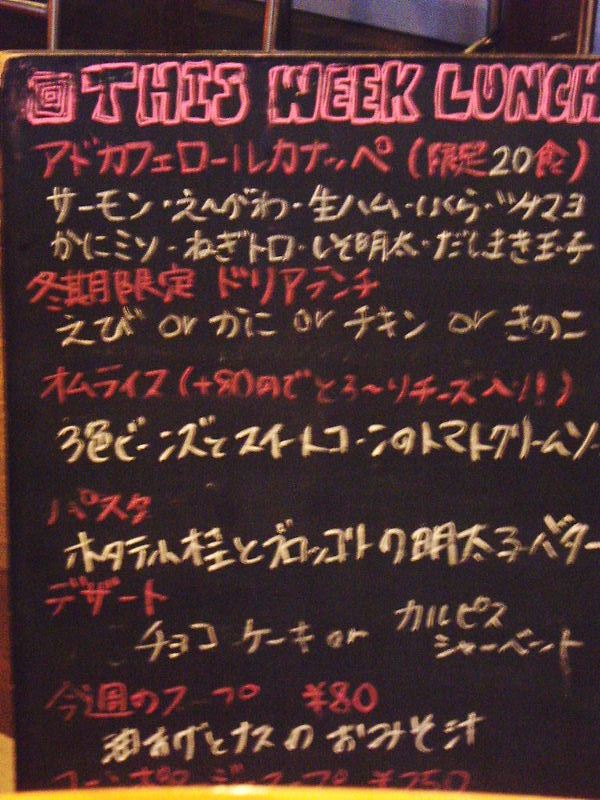 回 THIS WEEK LUNCH
アドカフェロールカナッペ(限定20食)
サーモン・えんがわ・生ハム・いくら・ツナマヨ
かにミソ・ねぎトロ・しそ明太・だしまき玉子
冬期限定 ドリアランチ
えび or かに or チキン or きのこ
オムライス(+80円でとろ〜りチーズ入り!)
3色ビーンズとスイートコーンのトマトクリームソ
パスタ
ホタテ貝柱とブロッコリーの明太子バター
デザート
チョコケーキ or カルピスシャーベット
今週のスープ ¥80
油あげとナスのおみそ汁
¥250